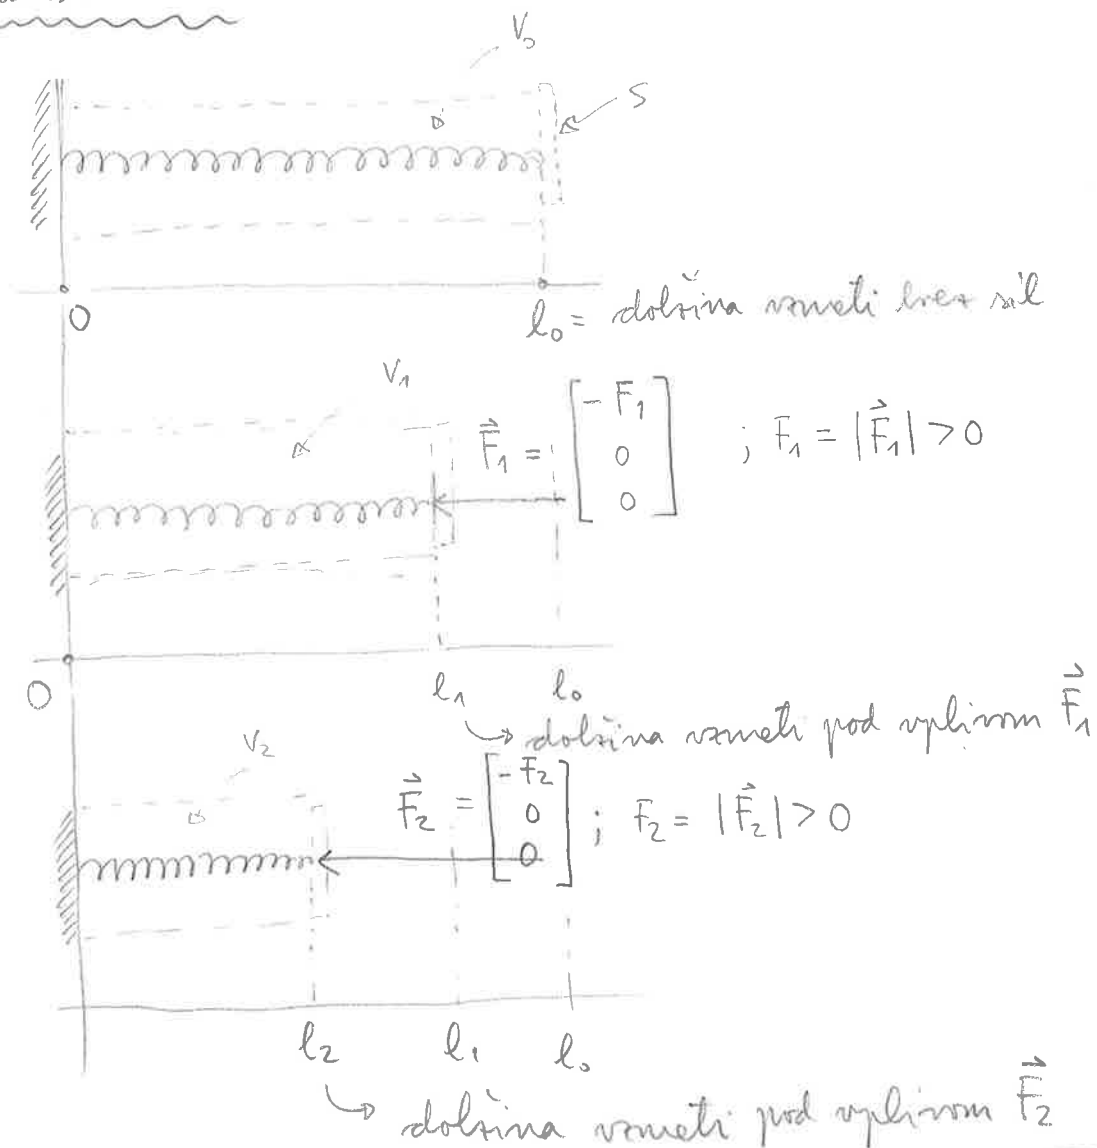 V₀
S
0
l₀ = dolžina vzmeti brez sil
V₁
F⃗₁ = [ -F₁ 0 0 ] ; F₁ = |F⃗₁| > 0
0
l₁ l₀
↳ dolžina vzmeti pod vplivom F⃗₁
V₂
F⃗₂ = [ -F₂ 0 0 ] ; F₂ = |F⃗₂| > 0
l₂ l₁ l₀
↳ dolžina vzmeti pod vplivom F⃗₂